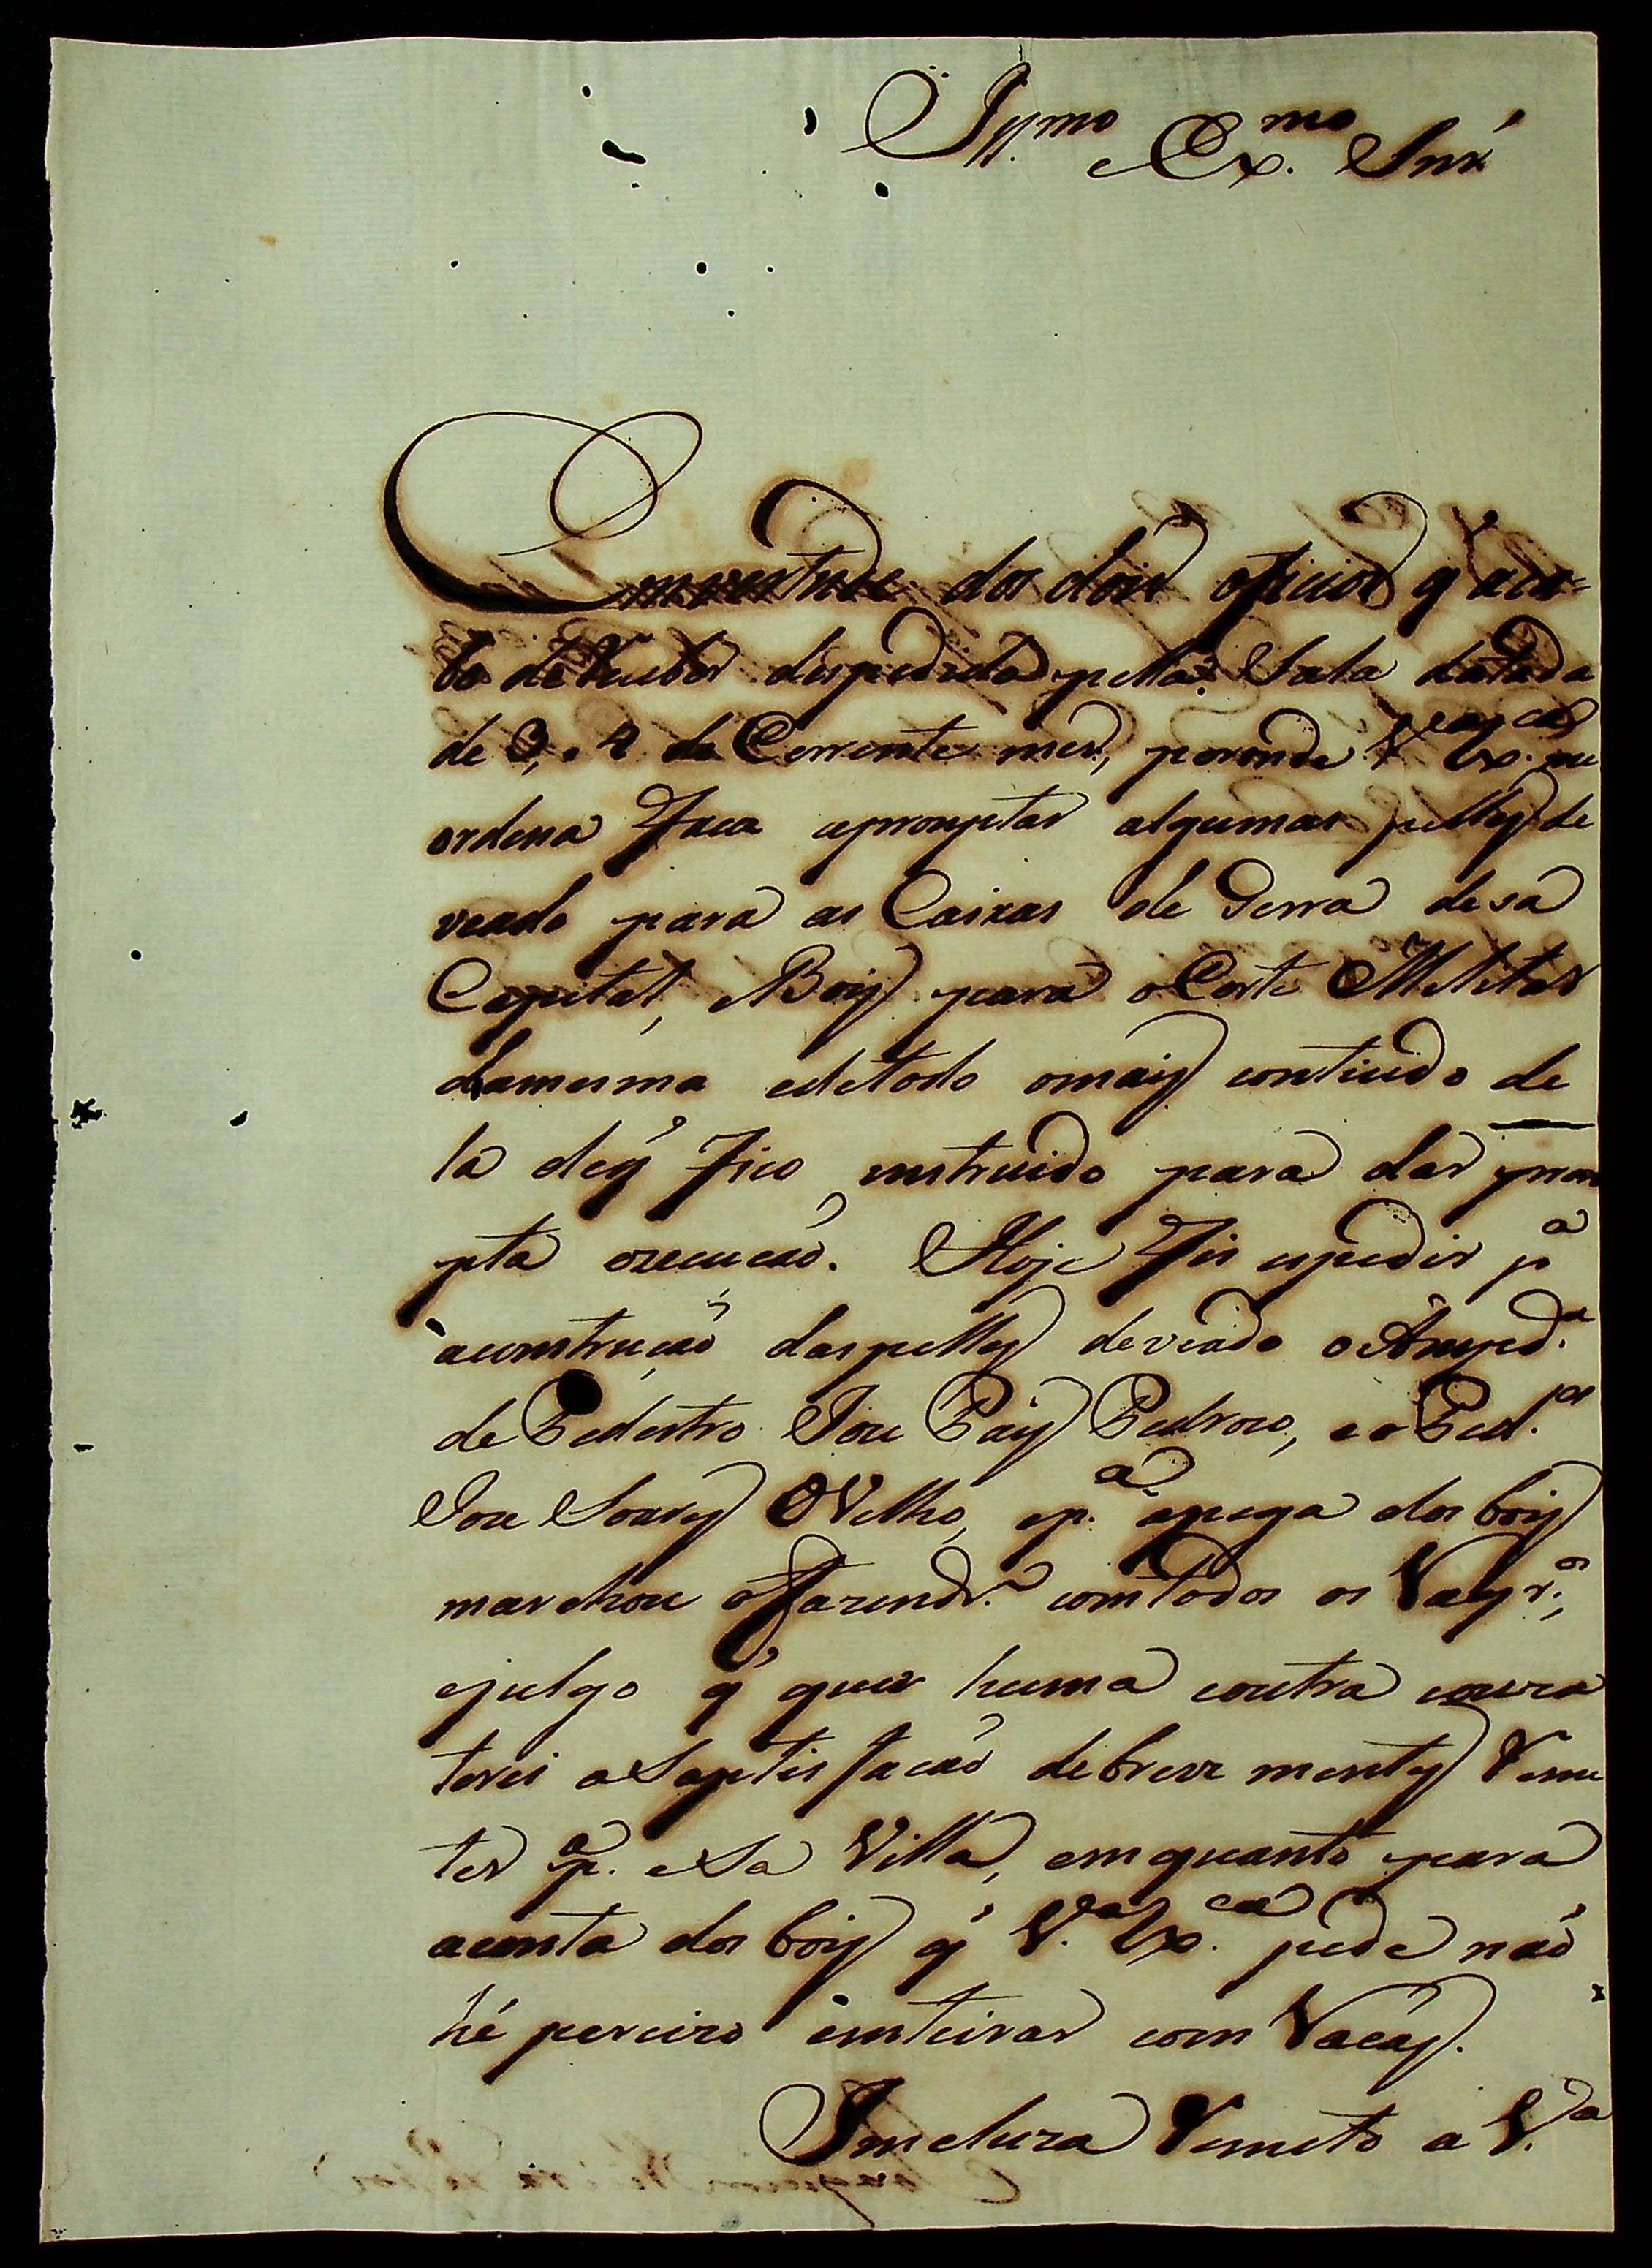 Ill.mo e Ex.mo Snr'
Em virtude dos dois oficios q' aca-
bo de receber despedidos pella Sala datada
de 3, e 4 do Corrente mes, poronde V.a Ex.ca me
ordena Faca apromptar algumas pelles de
veado para as Caixas de Gerra desa
Capital, e Bois para o Corte Melitar
damesma edetodo omais contiudo de
la deq' Fico instruido para dar prom
pta execucaõ. Hoje Fis espedir p.a
aconstrucaõ daspelles deviado o Ansped.a
de Pedestro Joze Pais Pedrozo, e o Ped.
Joze Soares OVelho, e p.a apega dos bois
marchou o Fazendr.o com todos os Vaqr.os,
ejulgo q' quer huma coutra couza
terei a Saptisfacaõ debreve mentes Reme
ter p.a eSa Villa, emquanto para
aconta dos bois q' V.a Ex.ca pede naõ
hé percizo emteirar com Vacas.
Imcluza Remeto a V.a